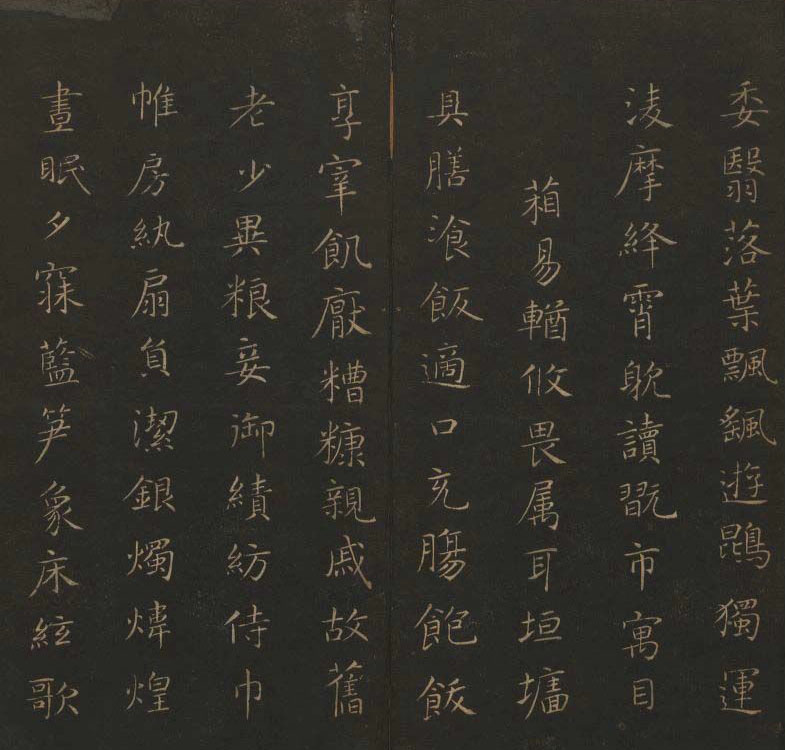 委翳落葉飄颻遊鵾獨運
淩摩絳霄躭讀翫市寓目
葙易輶攸畏属耳垣墻
具膳湌飯適口充膓飽飫
享宰飢厭糟糠親戚故舊
老少異粮妾御績紡侍巾
帷房紈扇員潔銀燭煒煌
晝眠夕寐藍笋象床絃歌